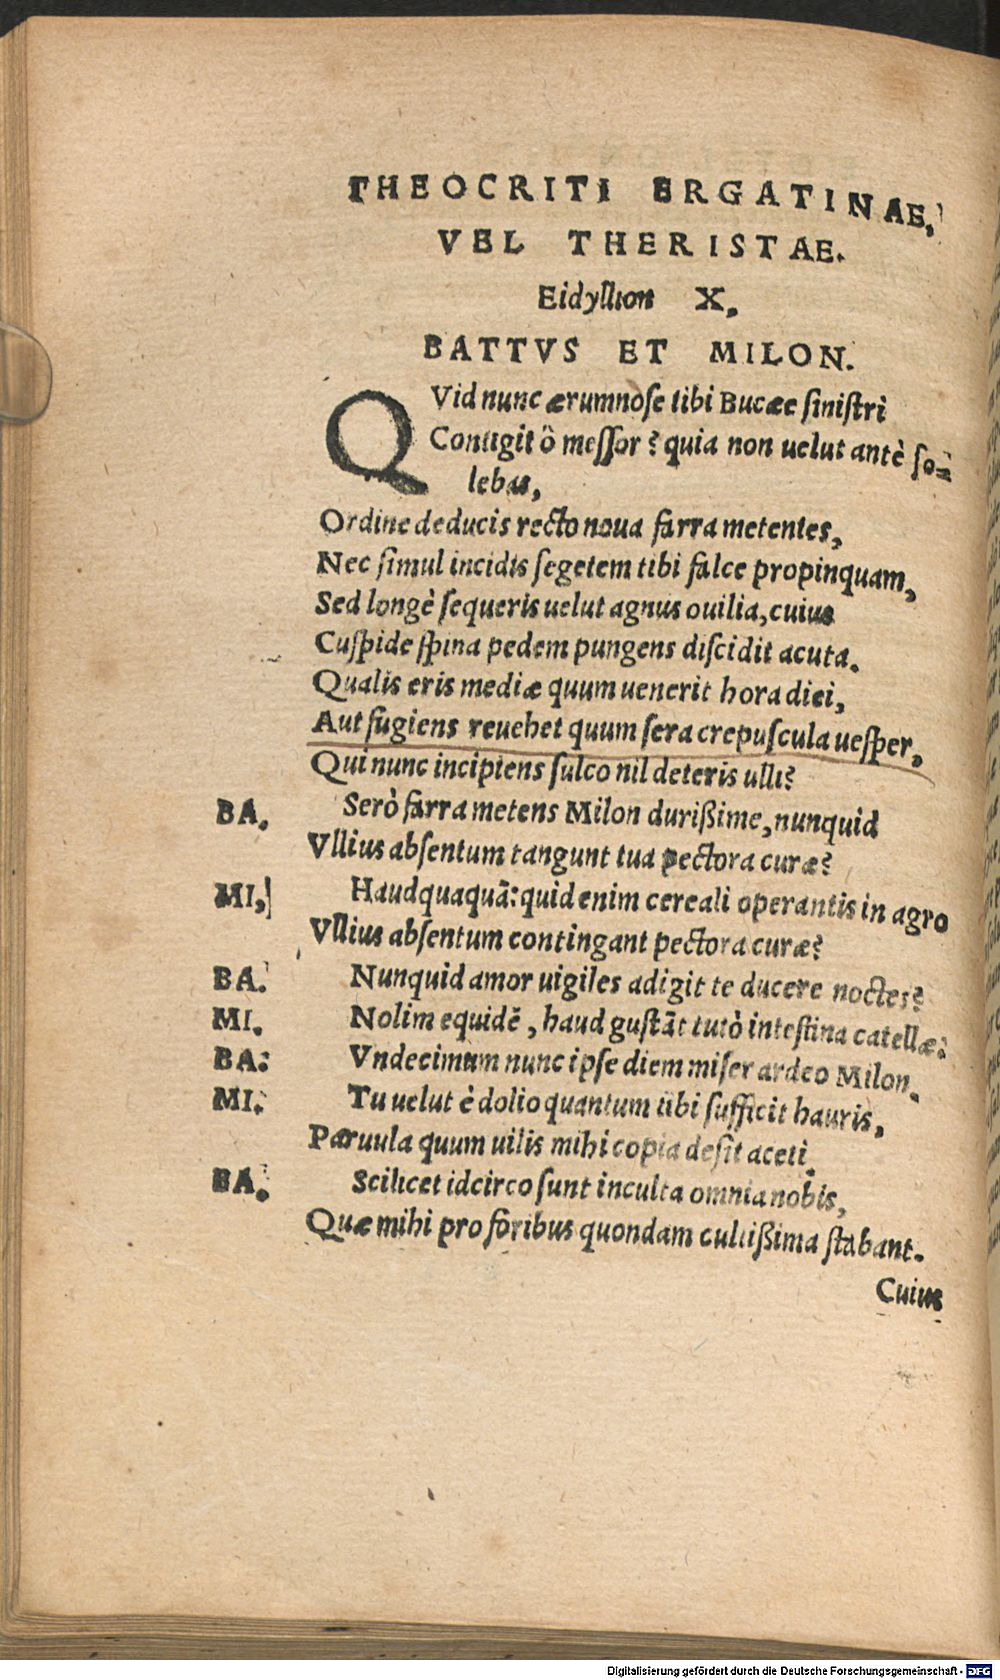 THEOCRITI ERGATINAE,
VEL THERISTAE.
Eidyllion X.
BATTVS ET MILON.
QVid nunc ærumnose tibi Bucæe siniſtri
Contigit ô meſſor? quia non uelut antè so=
lebas,
Ordine deducis recto noua farra metentes,
Nec simul incidis ſegetem tibi falce propinquam,
Sed longè ſequeris uelut agnus ouilia, cuius
Cuſpide ſpina pedem pungens diſcidit acuta.
Qualis eris mediæ quum uenerit hora diei,
Aut fugiens reuehet quum ſera crepuſcula ueſper,
Qui nunc incipiens ſulco nil deteris ulli?
BA. Serò farra metens Milon durißime, nunquid
Vllius abſentum tangunt tua pectora curæ?
MI. Haudquaquā: quid enim cereali operantis in agro
Vllius abſentum contingant pectora curæ?
BA. Nunquid amor uigiles adigit te ducere noctes?
MI. Nolim equidē, haud guſtāt tutò inteſtina catellæ.
BA. Vndecimum nunc ipſe diem miſer ardeo Milon.
MI. Tu uelut è dolio quantum tibi ſufficit hauris,
Paruula quum uilis mihi copia deſit aceti.
BA. Scilicet idcirco ſunt inculta omnia nobis,
Quæ mihi pro foribus quondam cultißima ſtabant.
Cuius
Digitalisierung gefördert durch die Deutsche Forschungsgemeinschaft - DFG